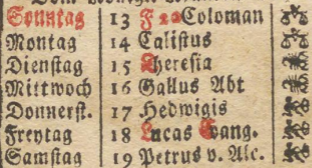 Sonntag 13 F 20 Coloman
Montag 14 Calistus
Dienstag 15 Theresia
Mittwoch 16 Gallus Abt
Donnerst. 17 Hedwigis
Freytag 18 Lucas Evang.
Samstag 19 Petrus v. Alc.